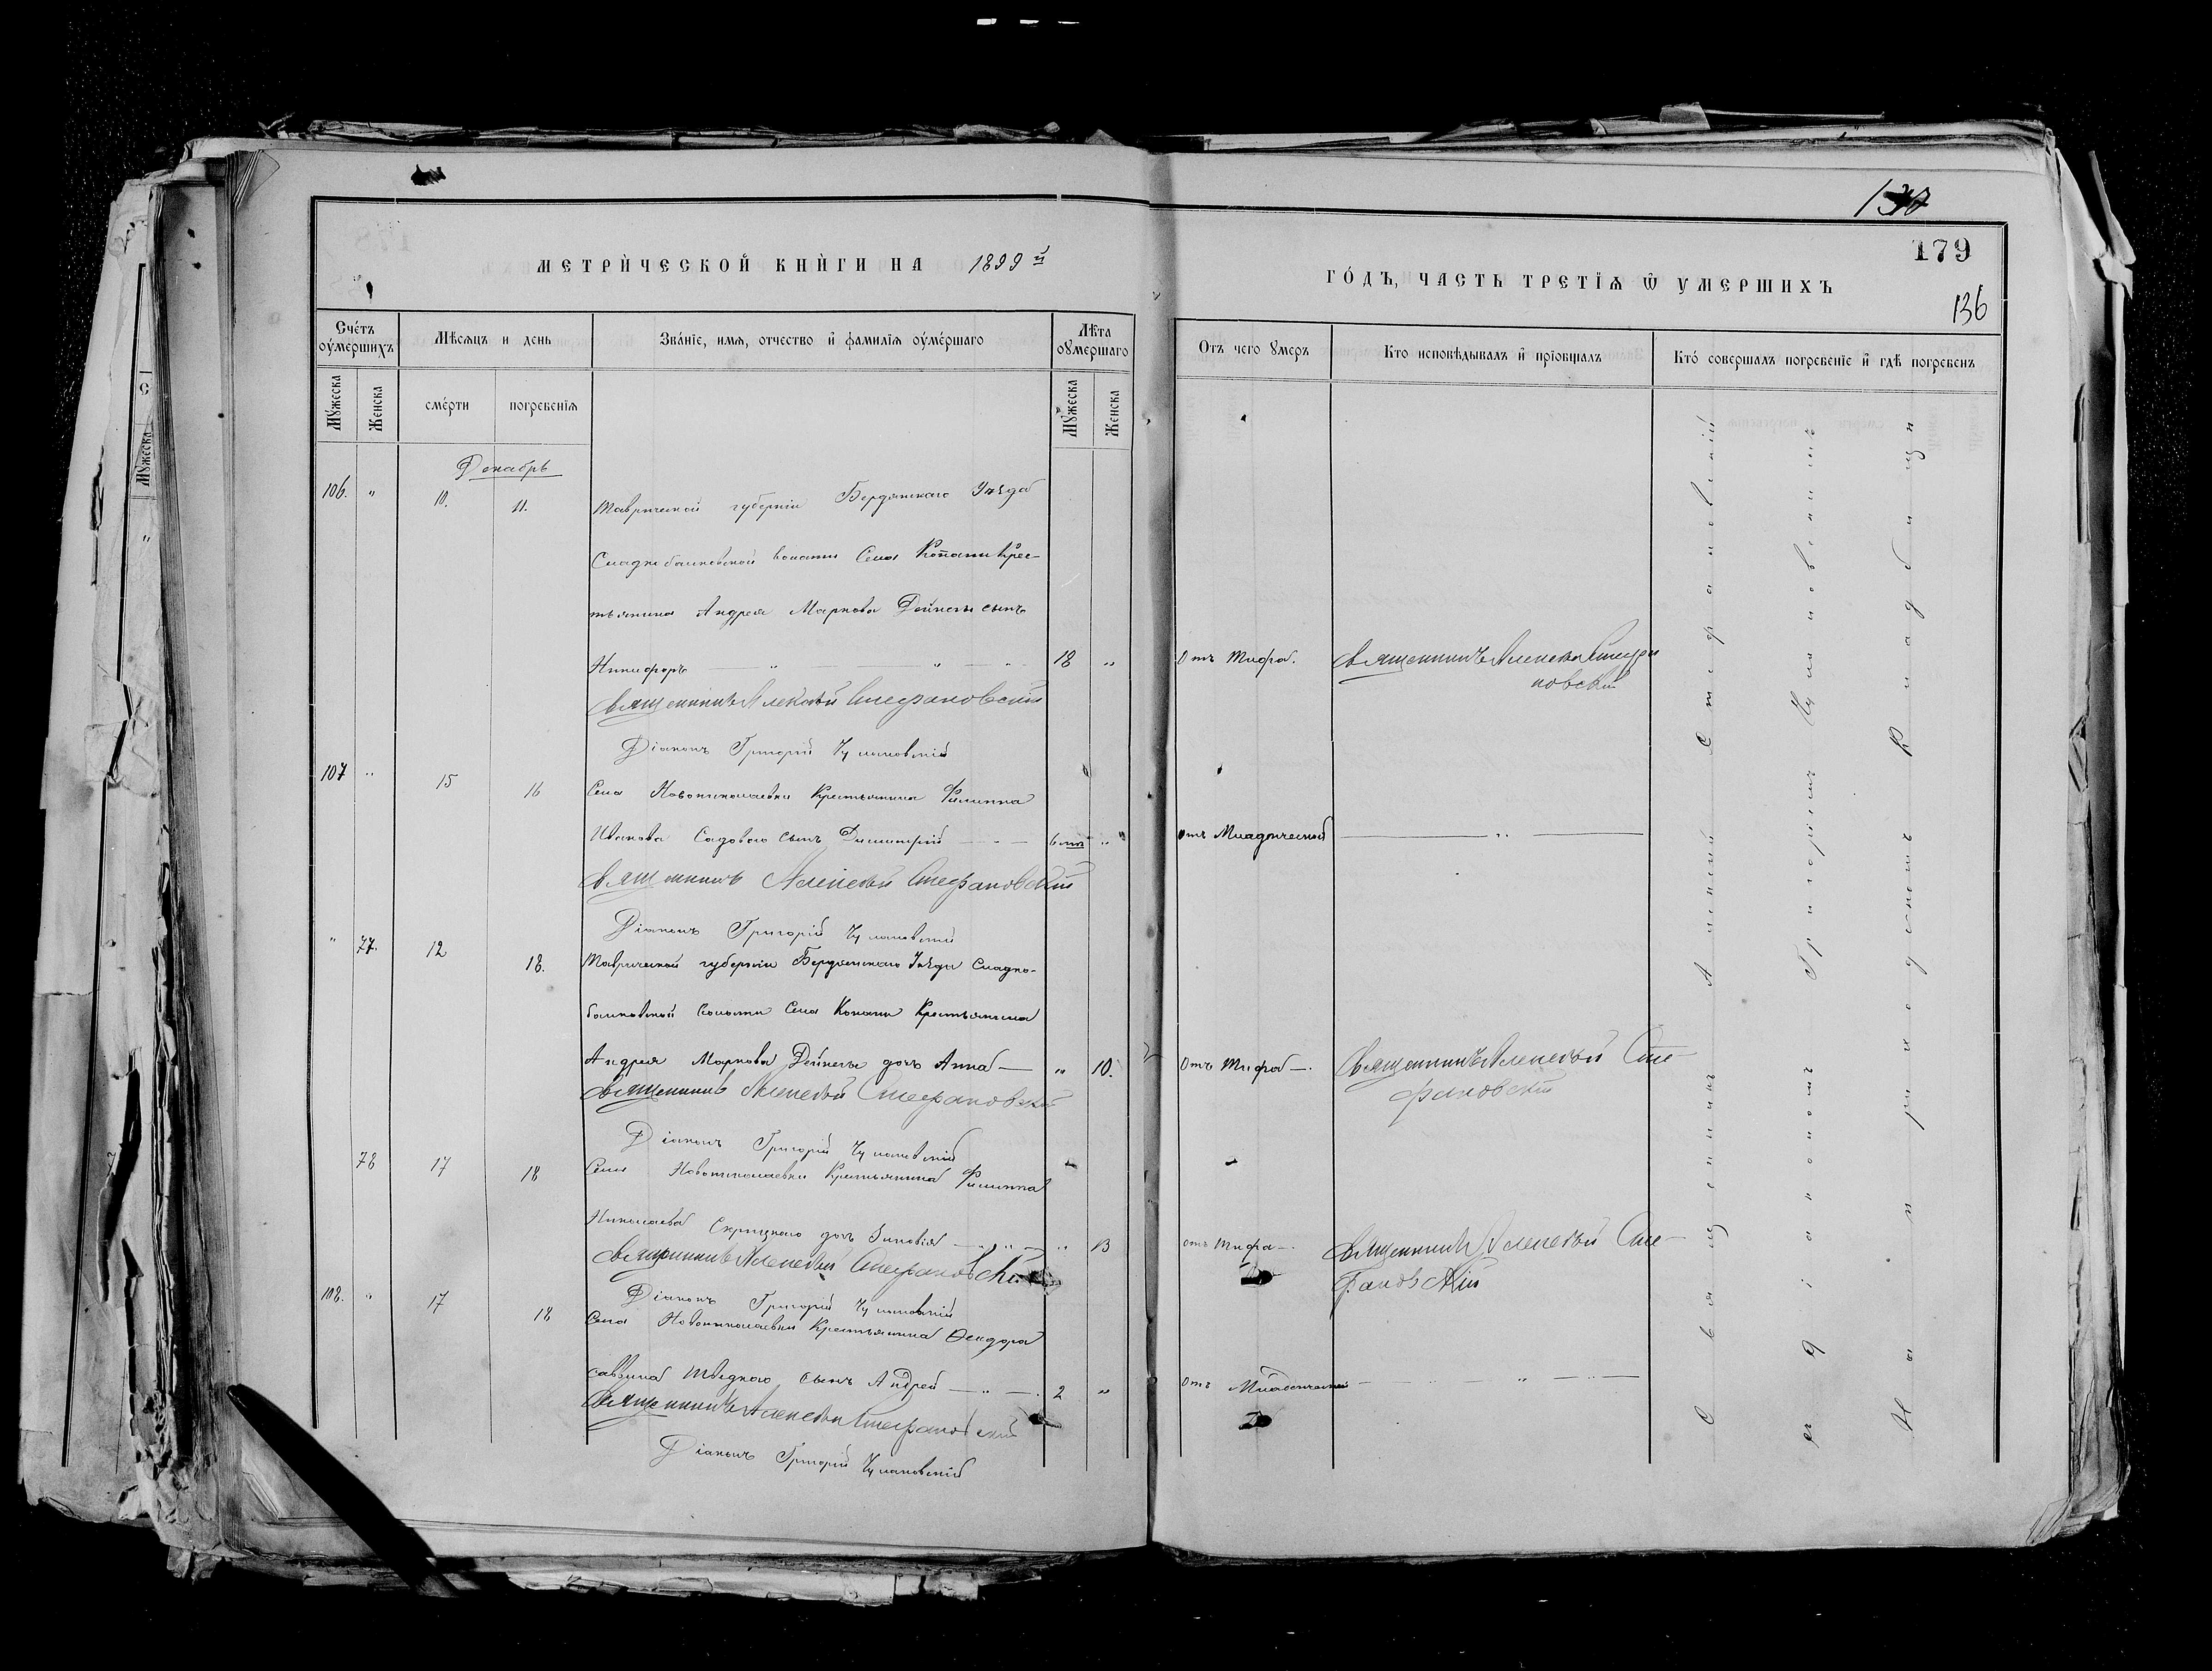 130
179
136
МЕТРИЧЕСКОЙ КНИГИ НА 1899 й
ГОДЪ, ЧАСТЬ ТРЕТІЯ Ѿ УМЕРШИХЪ
Счетъ оумершихъ
Мѣсяцъ и день
Званіе, имя, отчество и фамилія оумершаго
Лѣта оумершаго
Отъ чего умеръ
Кто исповѣдывалъ и пріобщалъ
Кто совершалъ погребеніе и гдѣ погребенъ
Мужеска
Женска
смерти
погребенія
Мужеска
Женска
Декабрь
106. " 10. 11. Таврической губерніи Бердянскаго Уѣзда
Сладкобалковской волости Села Копани Крес-
тьянина Андрея Маркова Дейнеги сынъ
Никифоръ — " " — " 18 " Отъ Тифа. Священникъ Алексѣй Стефа
новскій
Священникъ Алексѣй Стефановскій
Діаконъ Григорій
107 " 15 16 Села Новониколаевки Крестьянина Филиппа
Иванова Садоваго сынъ Димитрій — " — 6 " Отъ Младенческой — " —
Священникъ Алексѣй Стефановскій
Діаконъ Григорій
" 77. 12 18. Таврической губерніи Бердянскаго Уѣзда Сладко-
балковской волости Села Копани Крестьянина
Андрея Маркова Дейнеги дочь Анна — " 10. Отъ Тифа —. Священникъ Алексѣй Сте-
фановскій
Священникъ Алексѣй Стефановскій
Діаконъ Григорій
78 17 18 Села Новониколаевки Крестьянина Филиппа
Николаева Скрицкаго дочь Зиновія — " " — " 13 отъ Тифа —. Священникъ Алексѣй Сте-
фановскій
Священникъ Алексѣй Стефановскій
Діаконъ Григорій
108. " 17 18 Села Новониколаевки Крестьянина Ѳеодора
Саввина Шведкаго сынъ Андрей — " —. 2 " Отъ Младенческой — " —
Священникъ Алексѣй Стефановскій
Діаконъ Григорій
Священникъ Алексій Стефановскій
съ діакономъ Григоріемъ
На приходскомъ Кладбищи